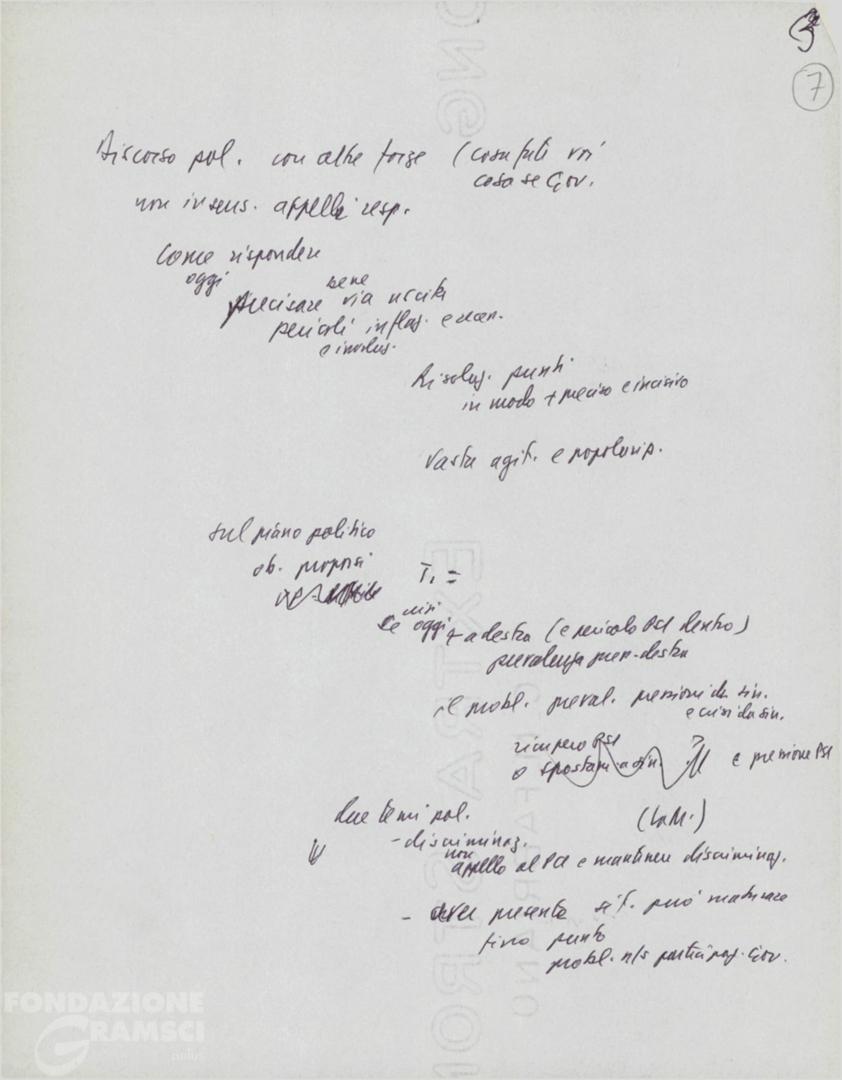 7
Discorso pol. con altre forze (cosa fate voi
cosa se Gov.
non in sens. appelli resp.
Come rispondere
oggi
bene
Precisare via uscita
pericoli inflaz. e recen.
e involuz.
Risoluz. punti
in modo + preciso e incisivo
Vasta agit. e popolariz.
sul piano politico
ob. proposi
T. =
crisi
se oggi + a destra (e pericolo PSI dentro)
prevalenza pres. destra
il probl. preval. pressioni da sin.
e crisi da sin.
recupero PSI
o spostam. a sin.
e pressione PSI
due temi pol.
(La M.)
- discriminaz.
non
appello al PCI e mantenere discriminaz.
- aver presente sit. può maturare
fino punto
probl. n/s partecipaz. Gov.
FONDAZIONE
GRAMSCI
onlus
EXTRA STRONG